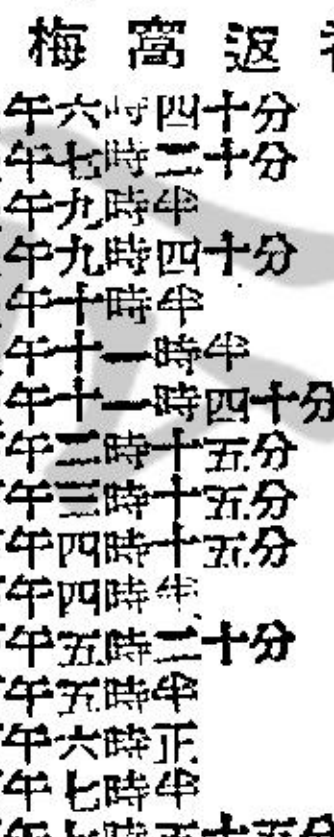 梅窩返
午六時四十分
午七時二十分
午九時半
午九時四十分
午十時半
午十一時半
午十一時四十分
午二時十五分
午三時十五分
午四時十五分
午四時半
午五時二十分
午五時半
午六時正
午七時半